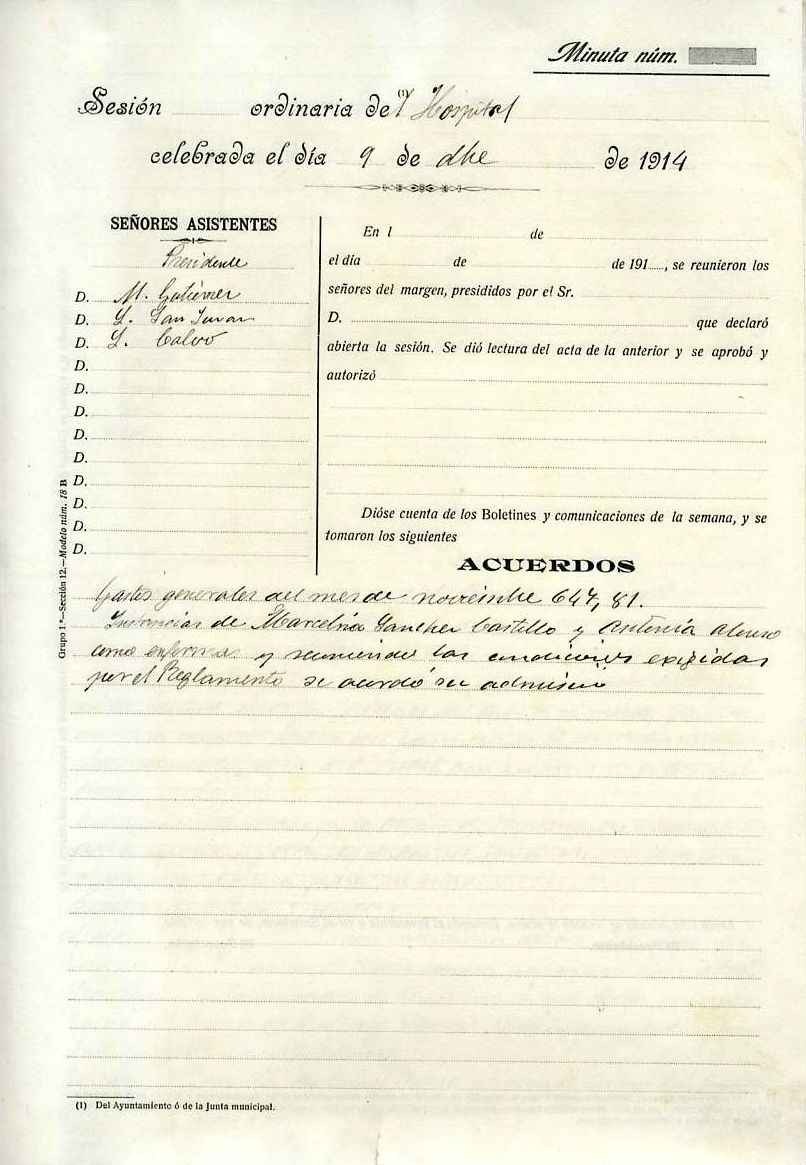 Minuta núm.
Sesión ordinaria de(1)l Hospital
celebrada el día 9 de dbe de 1914
SEÑORES ASISTENTES
Presidente
D. M. Gutiérrez
D. L. San Juan
D. L. Calvo
D.
D.
D.
D.
D.
D.
D.
D.
D.
En l de
el día de de 191, se reunieron los
señores del margen, presididos por el Sr.
D. que declaró
abierta la sesión. Se dió lectura del acta de la anterior y se aprobó y
autorizó
Dióse cuenta de los Boletines y comunicaciones de la semana, y se
tomaron los siguientes
ACUERDOS
Gastos generales del mes de noviembre 647,81.
Instancias de Marcelina Sanchez Castillo y Antonia Alonso
como enfermas y reuniendo las condiciones exigidas
por el Reglamento se acordó su admision
Grupo 1.º—Sección 12.—Modelo núm. 18 B
(1) Del Ayuntamiento ó de la Junta municipal.